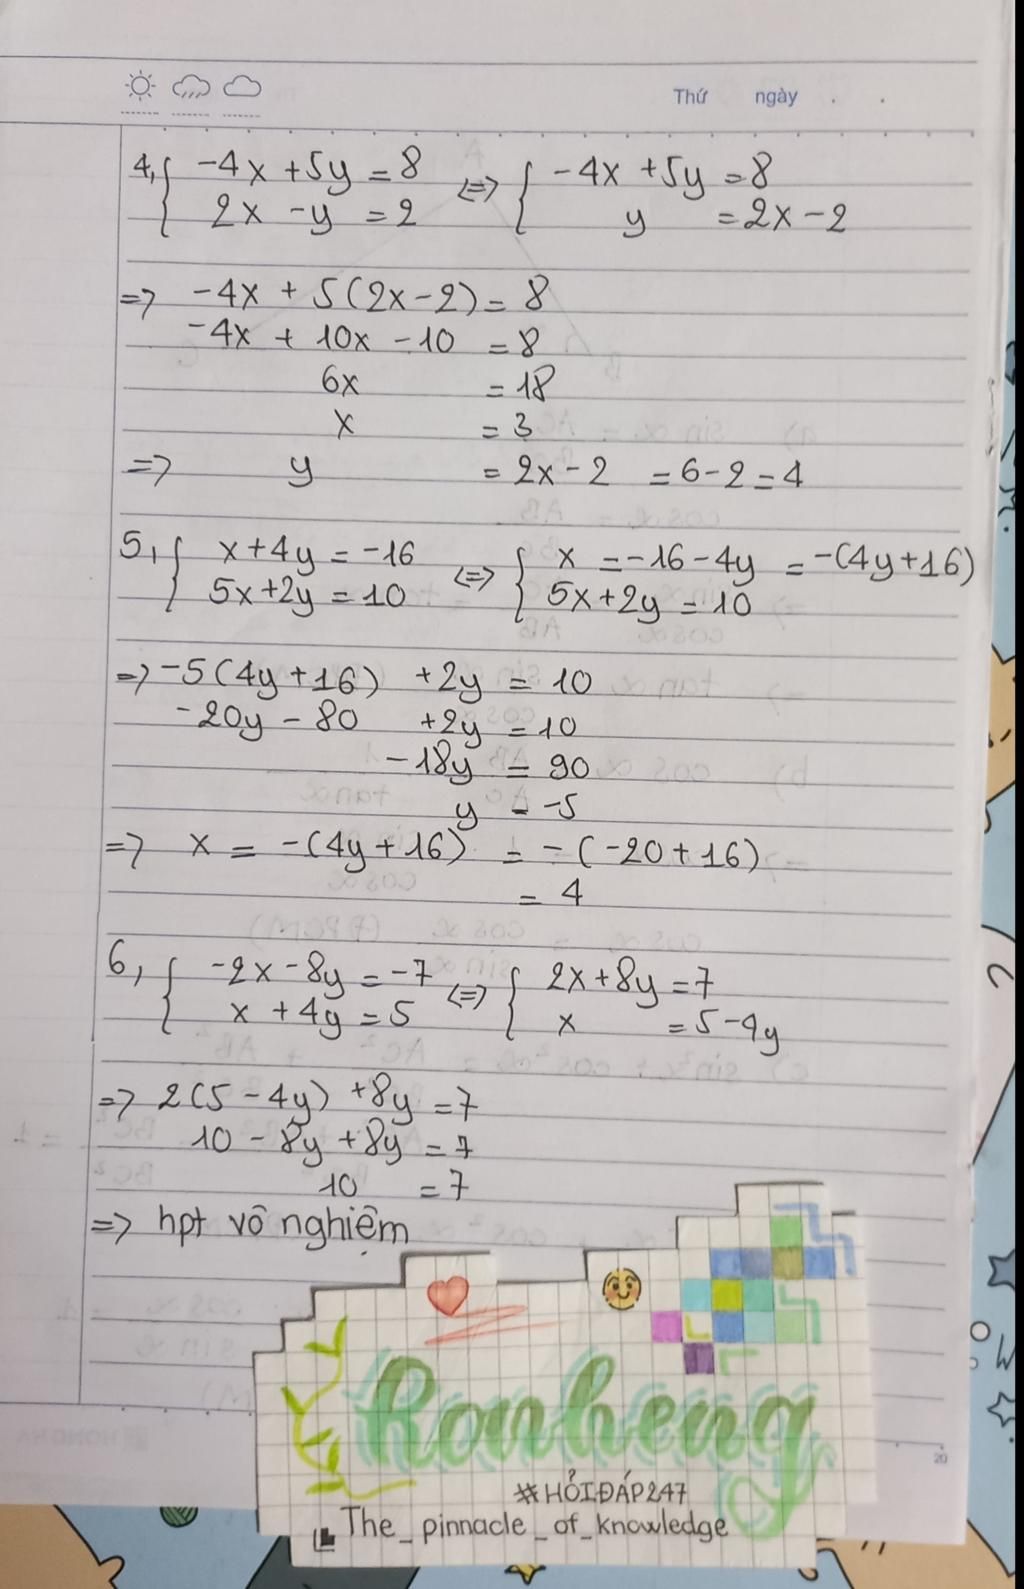 Thứ ngày . .
4, { -4x + 5y = 8 <=> { -4x + 5y = 8
2x - y = 2 y = 2x - 2
=> -4x + 5(2x - 2) = 8
-4x + 10x - 10 = 8
6x = 18
x = 3
=> y = 2x - 2 = 6 - 2 = 4
5, { x + 4y = -16 <=> { x = -16 - 4y = -(4y + 16)
5x + 2y = 10 5x + 2y = 10
=> -5(4y + 16) + 2y = 10
-20y - 80 + 2y = 10
-18y = 90
y = -5
=> x = -(4y + 16) = -(-20 + 16)
= 4
6, { -2x - 8y = -7 <=> { 2x + 8y = 7
x + 4y = 5 x = 5 - 4y
=> 2(5 - 4y) + 8y = 7
10 - 8y + 8y = 7
10 = 7
=> hpt vô nghiệm
Ronheng
20
#HỎIĐÁP247
The_pinnacle_of_knowledge